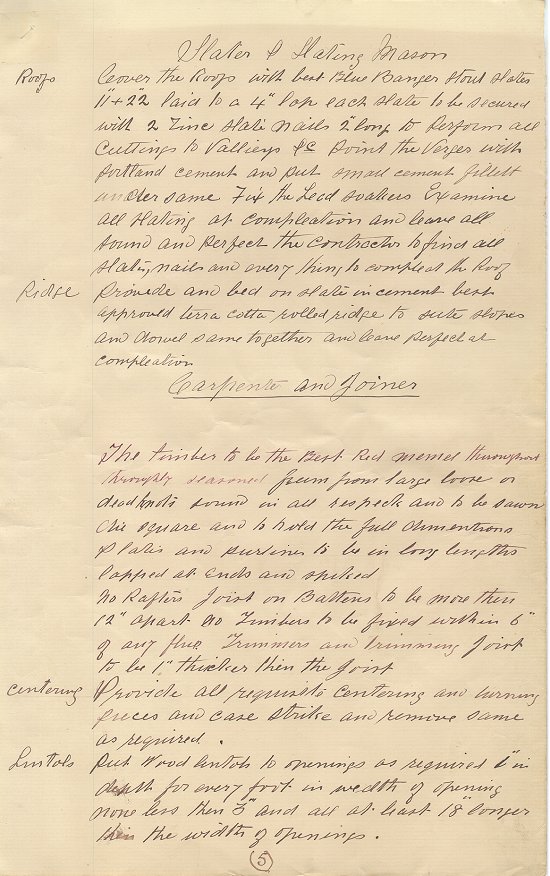 Slater & Slating Mason
Roofs Cover the Roofs with best Blue Banger Stout slates
11"+22" laid to a 4" lap each slate to be secured
with 2 Zinc slate nails 2" long to perform all
Cuttings to Vallieys &c point the Verges with
portland cement and put small cement fillett
under same Fix the Lead soakers Examine
all slating at compleation and leave all
sound and perfect the contractor to find all
slate, nails and every thing to compleat the Roof
Ridge Provide and bed on slate in cement best
approved terra cotta rolled ridge to suite slopes
and dowel same together and leave perfect at
compleation
Carpenter and Joiner
The timber to be the Best Red memel throughout
throughly seasoned from large loose or
dead knots sound in all respeck and to be sawn
die square and to hold the full dimentions
plates and purlines to be in long lengths
lapped at Ends and spiked
No Rafters Joist on Battens to be more then
12" apart no Timbers to be fixed within 6"
of any flue Trimmers and trimming Joist
to be 1" thicker then the Joist
centering Provide all requisite Centering and turning
pieces and case strike and remove same
as required .
Lintols Put Wood lintols to openings as required 1" in
depth for every foot in wedth of opening
none less then 3" and all at least 18" longer
then the width of openings .
5